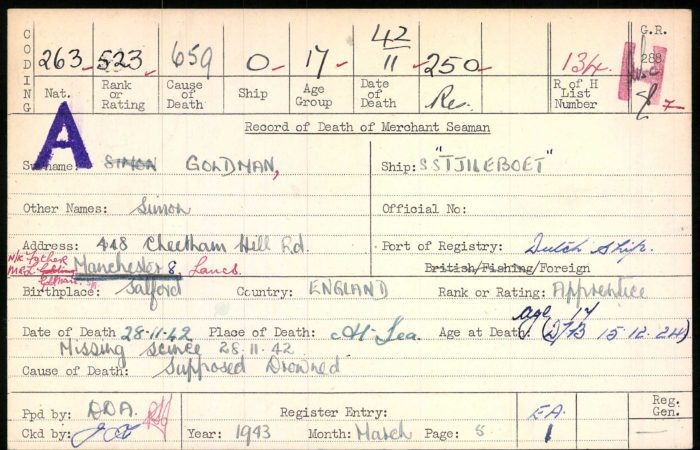 CODING
263 523 659 0 17 42/11 250 134
G.R. 288
Nat. Rank or Rating Cause of Death Ship Age Group Date of Death Re. R of H List Number 7
A
Record of Death of Merchant Seaman
Surname: SIMON GOLDMAN, Ship: SS "TJILEBOET"
Other Names: Simon Official No:
Address: 448 Cheetham Hill Rd. Port of Registry: Dutch Ship.
N/K Father
Manchester 8, Lancs. British/Fishing/Foreign
Birthplace: Salford Country: ENGLAND Rank or Rating: Apprentice
age 17
Date of Death 28-11-42 Place of Death: At Sea. Age at Death: (D/B 15.12.24)
Missing scince 28.11.42
Cause of Death: Supposed Drowned
Ppd by: DDA. Register Entry: EA. Reg. Gen.
Ckd by: Year: 1943 Month: March Page: 8 1